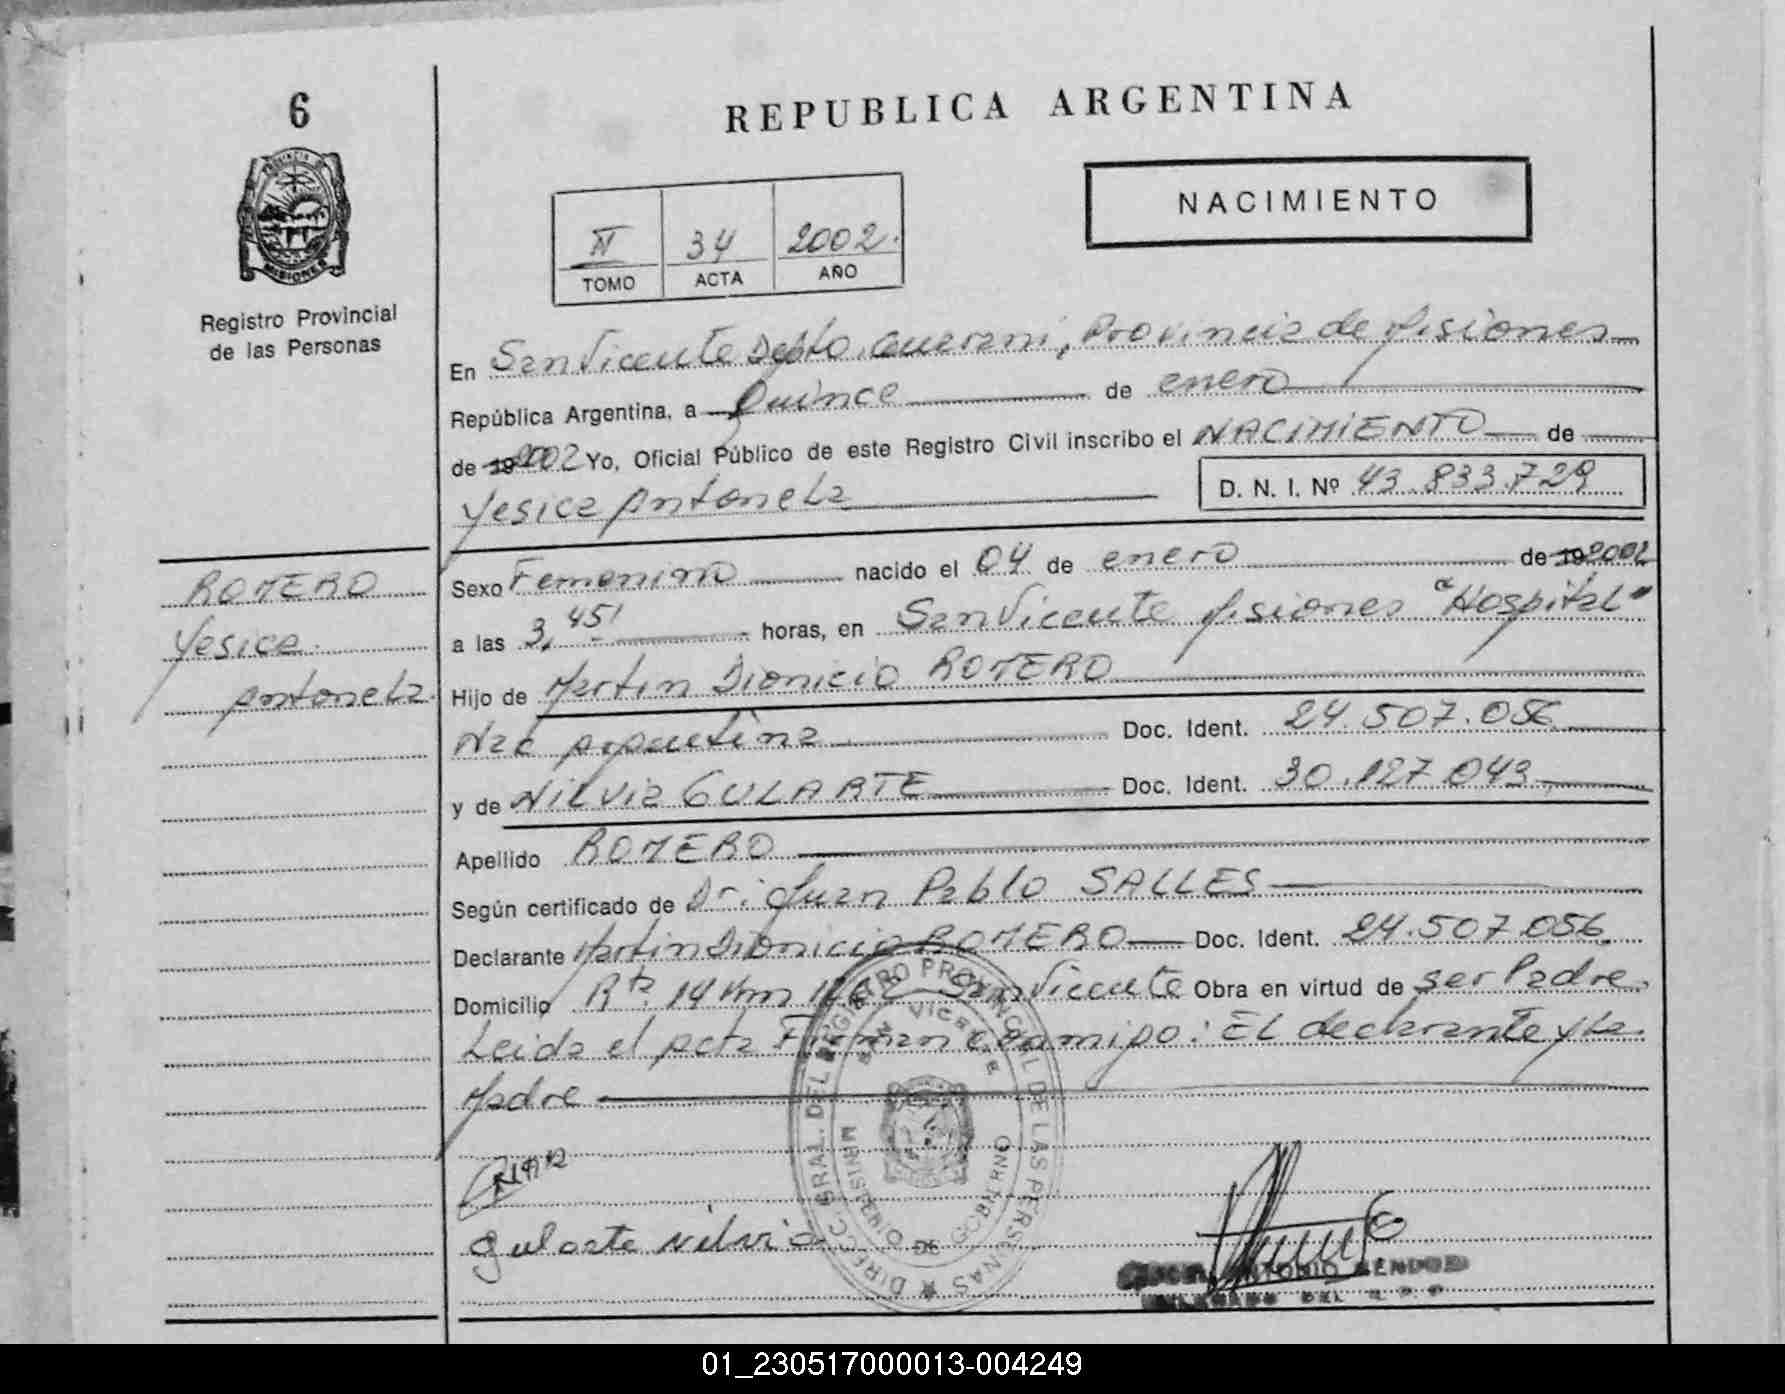 6
REPUBLICA ARGENTINA
NACIMIENTO
II 34 2002.
TOMO ACTA AÑO
PROVINCIA DE
MISIONES
Registro Provincial
de las Personas
En San Vicente Depto. Guarani, Provincia de Misiones
República Argentina, a Quince de enero
de 19 2002 Yo, Oficial Público de este Registro Civil inscribo el NACIMIENTO de
Yesica Antonela D. N. I. Nº 43.833.729
Sexo Femenino nacido el 04 de enero de 19 2002
a las 3,45' horas, en San Vicente Misiones "Hospital"
Hijo de Martin Dionicio ROMERO
Nac Argentina Doc. Ident. 24.507.056
y de Nilvia GULARTE Doc. Ident. 30.127.043
Apellido ROMERO
Según certificado de Dr: Juan Pablo SALLES
Declarante Martin Dionicio ROMERO Doc. Ident. 24.507.056.
Domicilio Rta 14 Km San Vicente Obra en virtud de ser Padre.
Leida el acta Firman conmigo: El declarante y La
Madre
ROMERO
Yesica
Antonela.
gularte nilvia
DIRECC. GRAL. DEL REGISTRO PROVINCIAL DE LAS PERSONAS
SAN VICENTE
MINISTERIO DE GOBIERNO
ANTONIO MENDOZ
DEL R. P. P
01_230517000013-004249